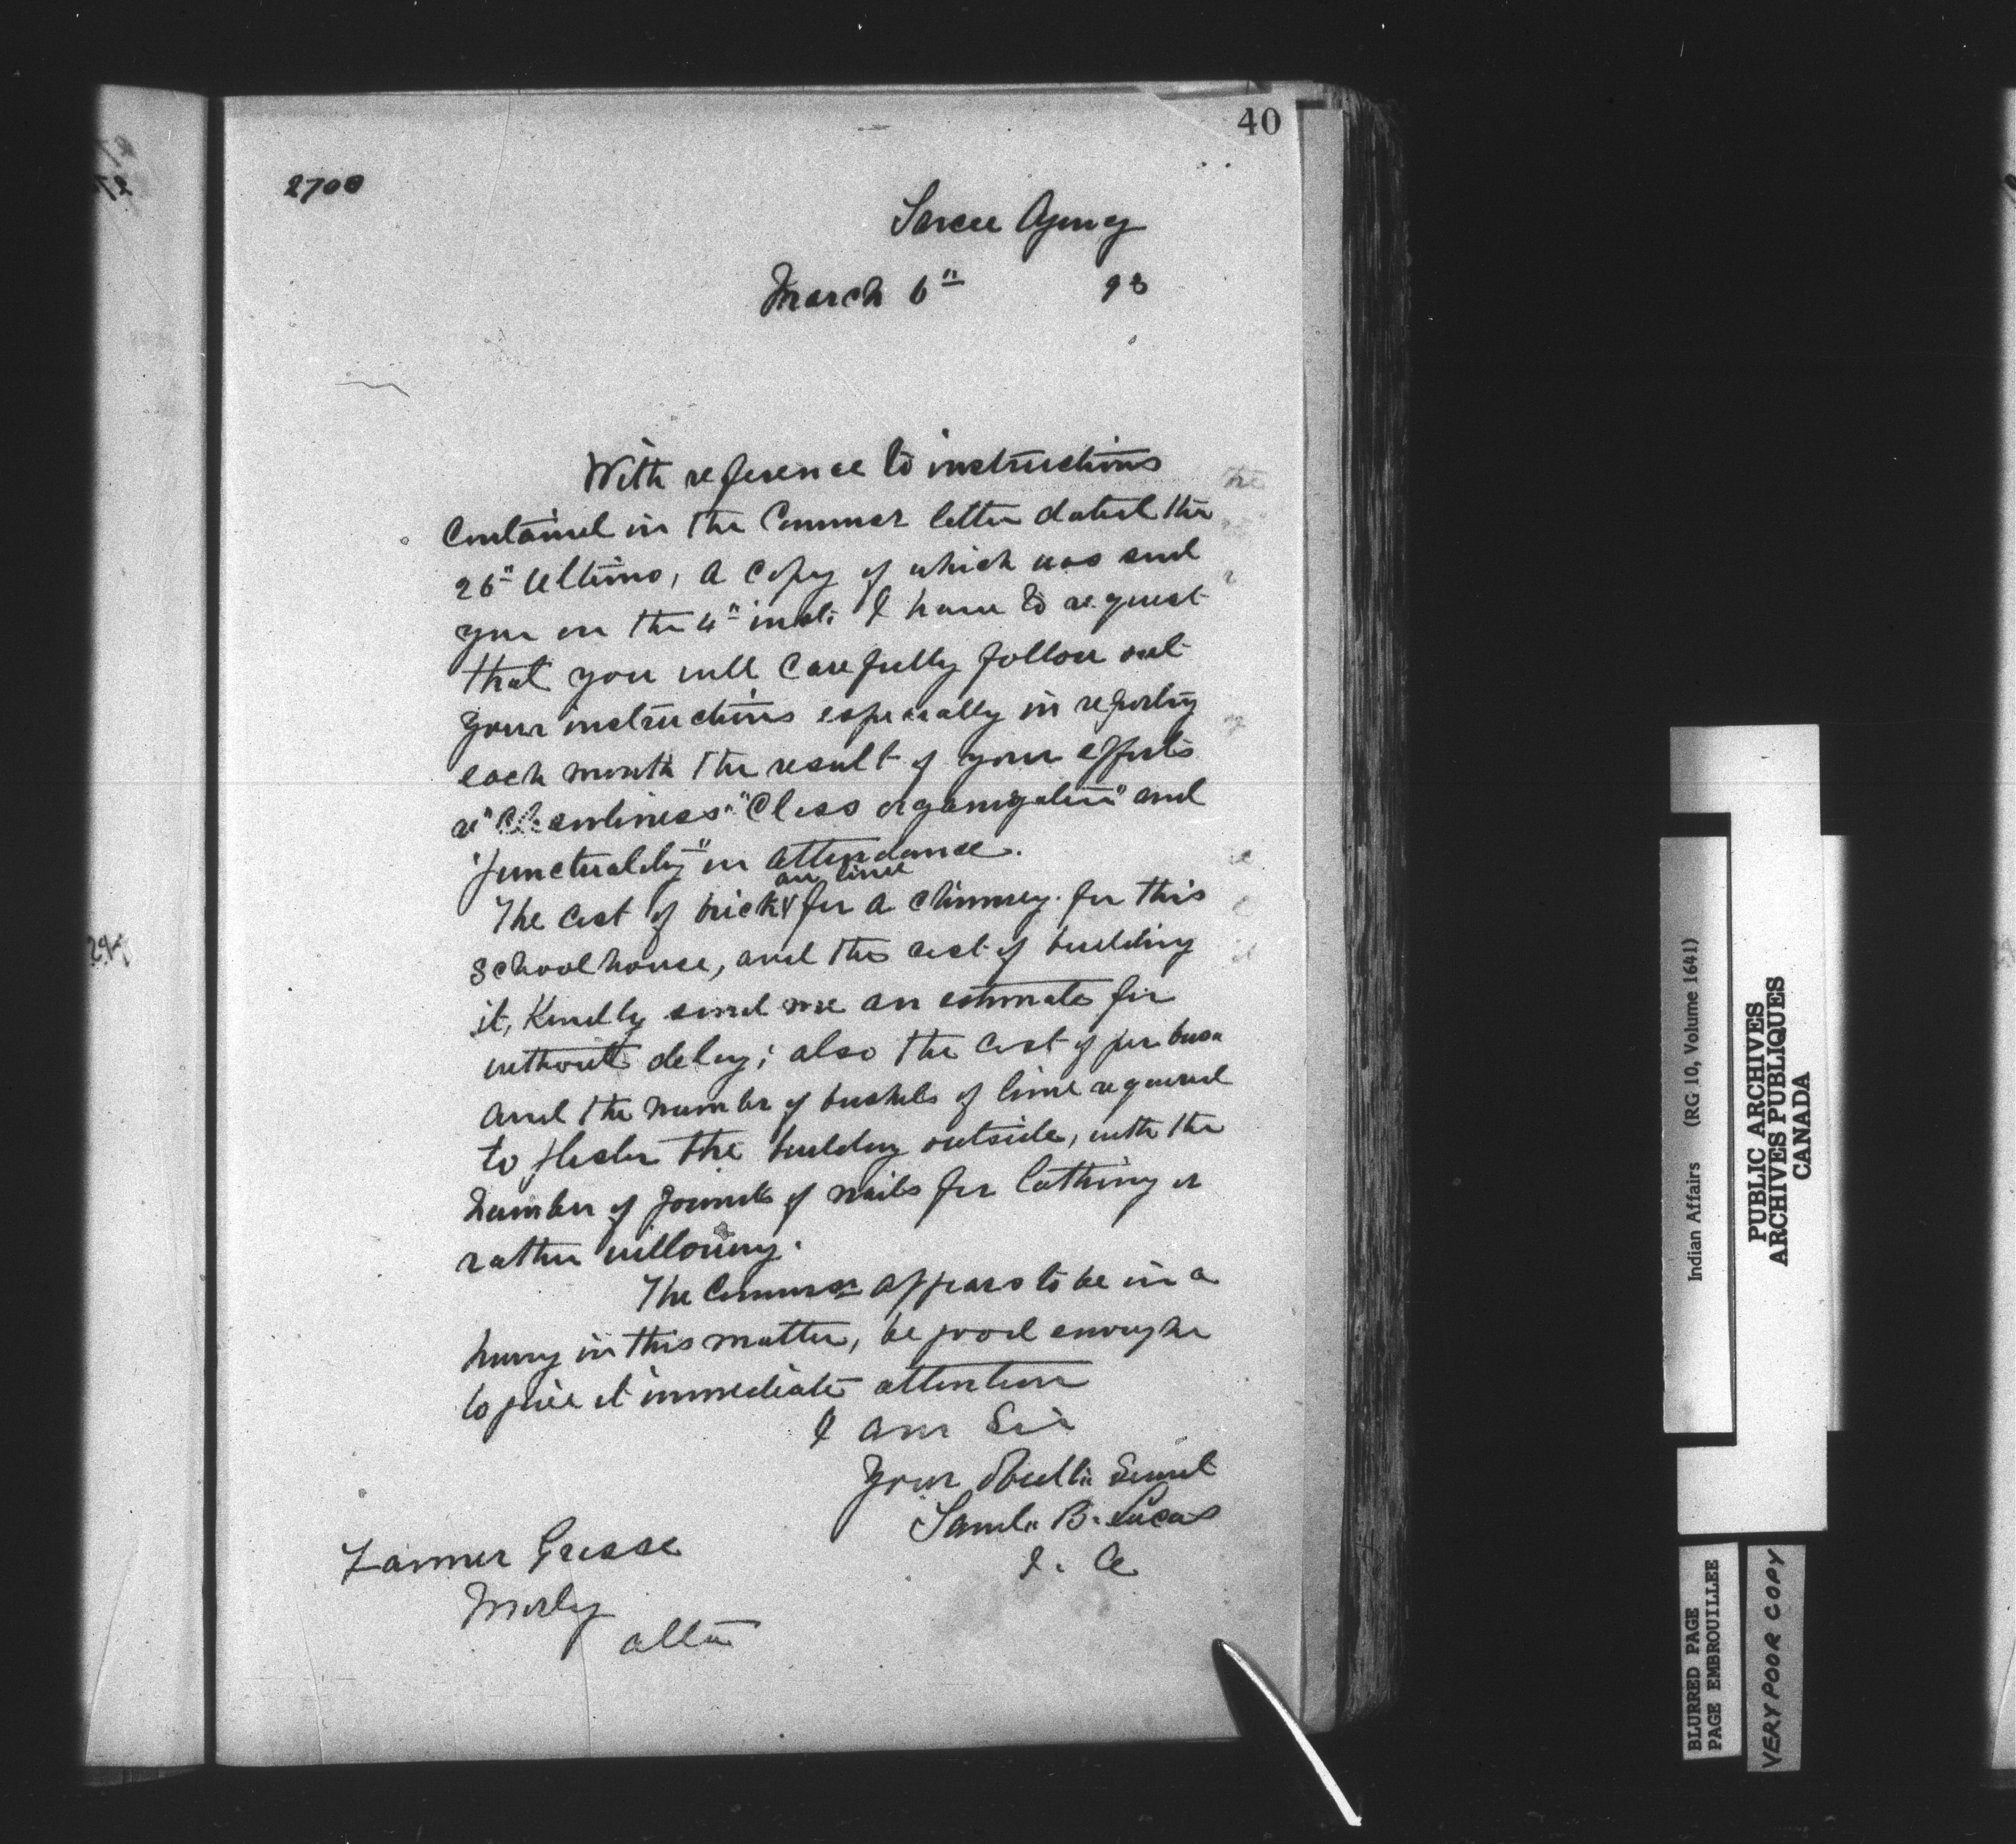 40
2708
Sarcee Agency
March 6" 93
With reference to instructions
contained in the Commsr letter dated the
26" Ultimo, a copy of which was send
you on the 4" inst: I have to request
that you will carefully follow out
your instructions especially in reporting
each month the result of your efforts
re "Cleanliness" "Class organization" and
"punctuality" in attendance.
an lime
The cost of brick & for a chimney for this
schoolhouse, and the cost of building
it, Kindly send me an estimate for
without delay; also the cost of per
and the number of bushels of lime required
to plaster the building outside, with the
number of pounds of nails for lathing or
rather willowing.
The Commsr appears to be in a
hurry in this matter, be good enough
to give it immediate attention
I am Sir
Your Obedt Servnt
Saml. B. Lucas
I. A
Farmer Grasse
Morley
Alta
Indian Affairs (RG 10, Volume 1641)
PUBLIC ARCHIVES
ARCHIVES PUBLIQUES
CANADA
BLURRED PAGE
PAGE EMBROUILLEE
VERY POOR COPY